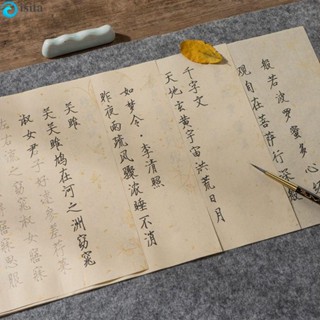 般若波罗蜜多心
观自在菩萨行深般
千字文
天地玄黄宇宙洪荒日月
如梦令·李清照
昨夜雨疏风骤浓睡不消
关雎
关关雎鸠在河之洲窈窕
淑女君子好逑参差荇菜
左右流之窈窕淑女寤寐